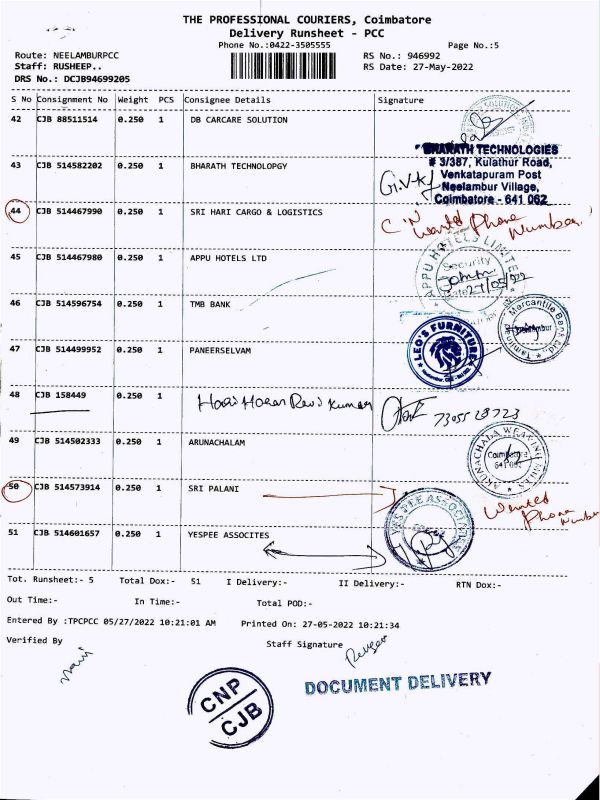 THE PROFESSIONAL COURIERS, Coimbatore
Delivery Runsheet - PCC
Phone No.:0422-3505555
Page No.:5
Route: NEELAMBURPCC
RS No.: 946992
Staff: RUSHEEP..
RS Date: 27-May-2022
DRS No.: DCJB94699205
S No Consignment No Weight PCS Consignee Details Signature
42 CJB 88511514 0.250 1 DB CARCARE SOLUTION
BHARATH TECHNOLOGIES
# 3/387, Kulathur Road,
Venkatapuram Post
Neelambur Village,
Coimbatore - 641 062
43 CJB 514582202 0.250 1 BHARATH TECHNOLOPGY G.V.K
44 CJB 514467990 0.250 1 SRI HARI CARGO & LOGISTICS
Wanted Phone
Number
45 CJB 514467980 0.250 1 APPU HOTELS LTD
APPU HOTELS LIMITED
Security
Date 27/05/22
46 CJB 514596754 0.250 1 TMB BANK
Mercantile Bank Ltd
47 CJB 514499952 0.250 1 PANEERSELVAM
LEO'S FURNITURE
48 CJB 158449 0.250 1 Hari Haran Ravi Kumar 7305528723
49 CJB 514502333 0.250 1 ARUNACHALAM
ARUNACHALA WEAVING MILLS
Coimbatore
641 062
50 CJB 514573914 0.250 1 SRI PALANI
Wanted
Phone
Number
51 CJB 514601657 0.250 1 YESPEE ASSOCITES
YESPEE ASSOCIATES
Tot. Runsheet:- 5 Total Dox:- 51 I Delivery:- II Delivery:- RTN Dox:-
Out Time:- In Time:- Total POD:-
Entered By :TPCPCC 05/27/2022 10:21:01 AM Printed On: 27-05-2022 10:21:34
Verified By Staff Signature
CNP
CJB
DOCUMENT DELIVERY